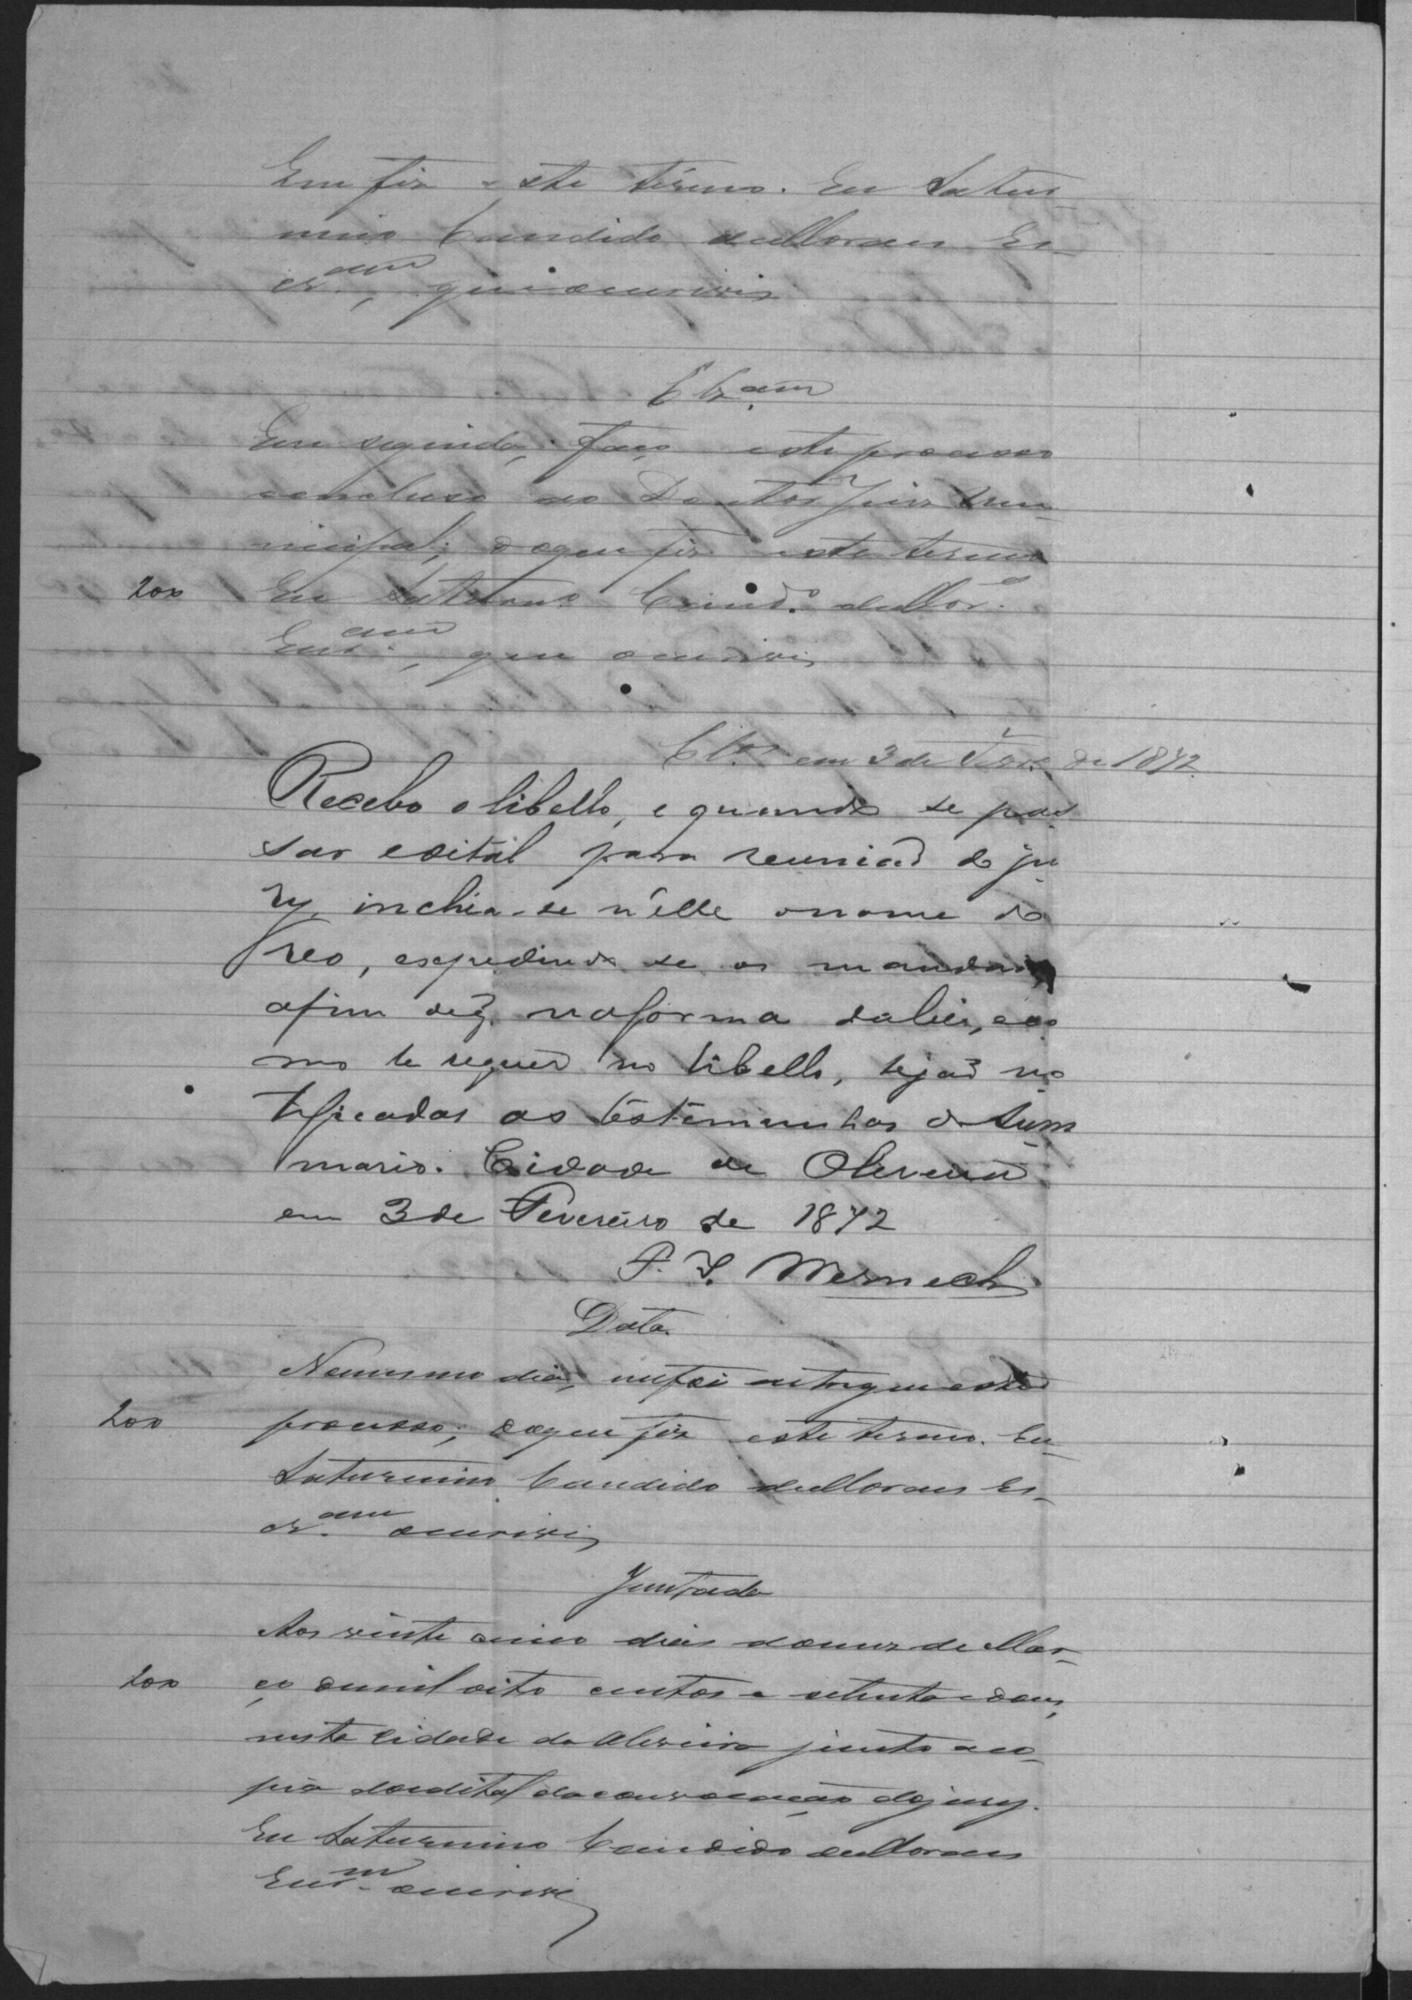 Em fiz este termo. Eu Satur-
nino Candido de Moraes Es-
cr.am, que o escrevi
Cl.am
Em seguida, faço este processo
concluso ao Doutor Juiz Mu-
nicipal; do que fiz este termo
200 Eu Saturnino Cand.o de Mor.es
Escr.am, que o escrevi
Cl.os em 3 de Fever.o de 1872.
Recebo o libello, e quando se pas
sar edital para reunião do ju
ry, inclua-se n'elle o nome do
reo, expedindo se os mandados
afim de q. na forma da lei, e co
mo se requer no libello, sejão no
tificadas as testemunhas do sum
mario. Cidade de Oliveira
em 3 de Fevereiro de 1872
F. I. Werneck
Data
No mesmo dia, me foi entregue este
200 processo; do que fiz este termo. Eu
Saturnino Candido de Moraes Es-
cr.am o escrevi
Juntada
Aos vinte cinco dias do mez de Mar-
200 ço de mil oito centos e setenta e dous,
nesta Cidade da Oliveira junto a co-
pia do edital da convocação do jury.
Eu Saturnino Candido de Moraes
Escr.m o escrevi